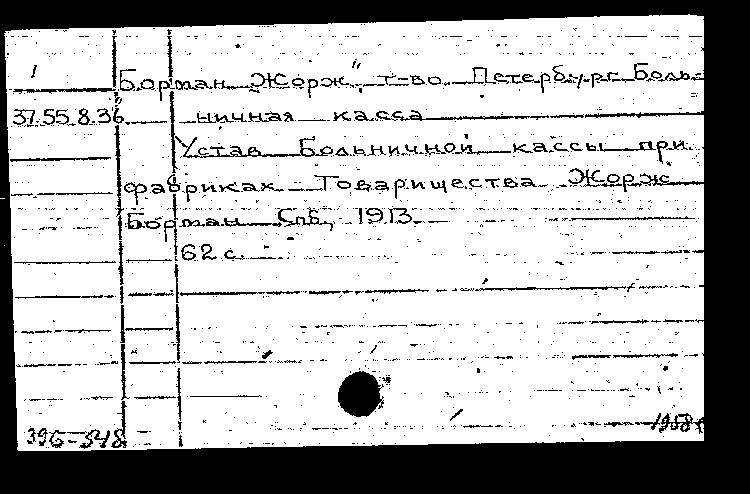 1
„Борман Жорж", т-во. Петербург. Боль-
37.55.8.36 ничная касса
Устав Больничной кассы при
фабриках Товарищества Жорж
Борман. Спб., 1913.
62 с.
396-348
1958